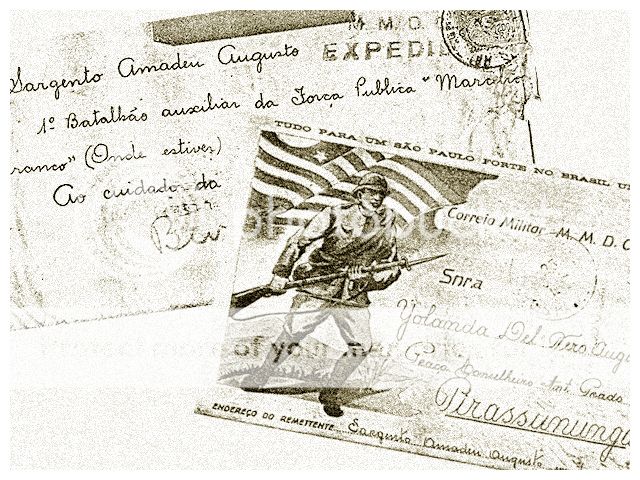 M. M. D. C.
EXPEDI
Sargento Amadeu Augusto
1º Batalhão auxiliar da Força Publica "Marcilio
ranco" (Onde estiver)
Ao cuidado da
TUDO PARA UM SÃO PAULO FORTE NO BRASIL U
Correio Militor - M. M. D. C
Snr.a
Yolanda Del Nero Augu
Praça Conselheiro Ant. Prado
Pirassunung
ENDEREÇO DO REMETTENTE Sargento Amadeu Augusto
of your